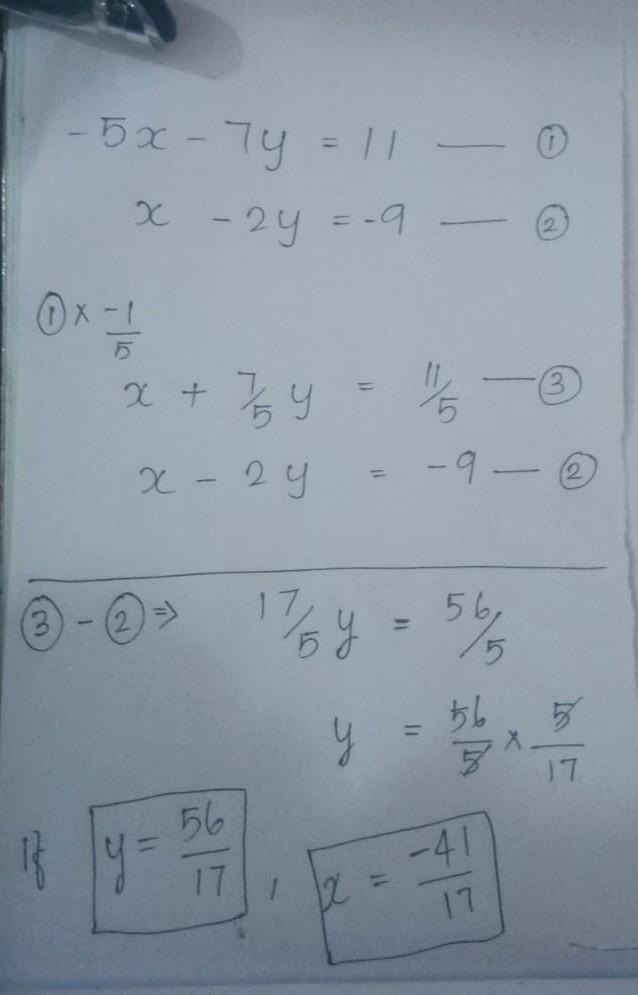 -5x - 7y = 11 — ①
x - 2y = -9 — ②
① × -1/5
x + 7/5 y = 11/5 — ③
x - 2y = -9 — ②
③ - ② ⇒ 17/5 y = 56/5
y = 56/5 × 5/17
If y = 56/17 , x = -41/17